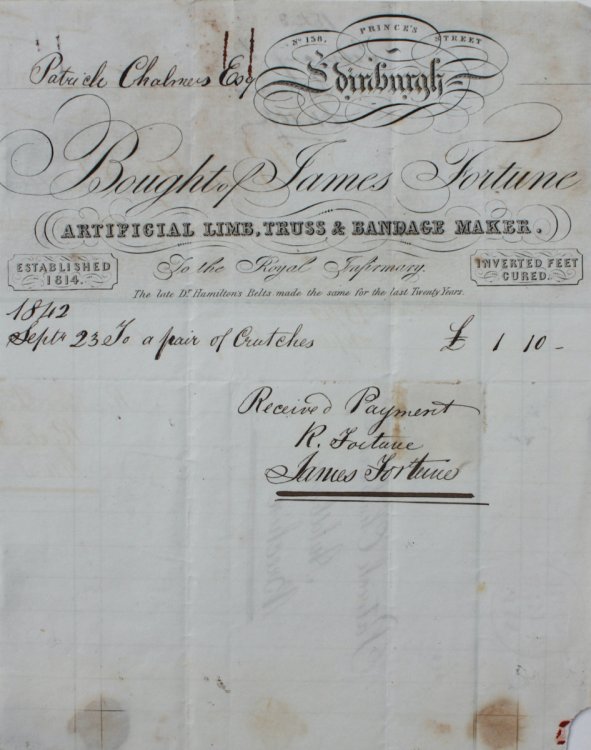 No 158, PRINCE'S STREET
Edinburgh
Patrick Chalmers Esq
Bought of James Fortune
ARTIFICIAL LIMB, TRUSS & BANDAGE MAKER.
ESTABLISHED 1814.
To the Royal Infirmary.
INVERTED FEET CURED.
The late Dr. Hamilton's Belts made the same for the last Twenty Years.
1842
Septr 23 To a pair of Crutches £ 1 10 -
Received Payment
R. Fortune
James Fortune